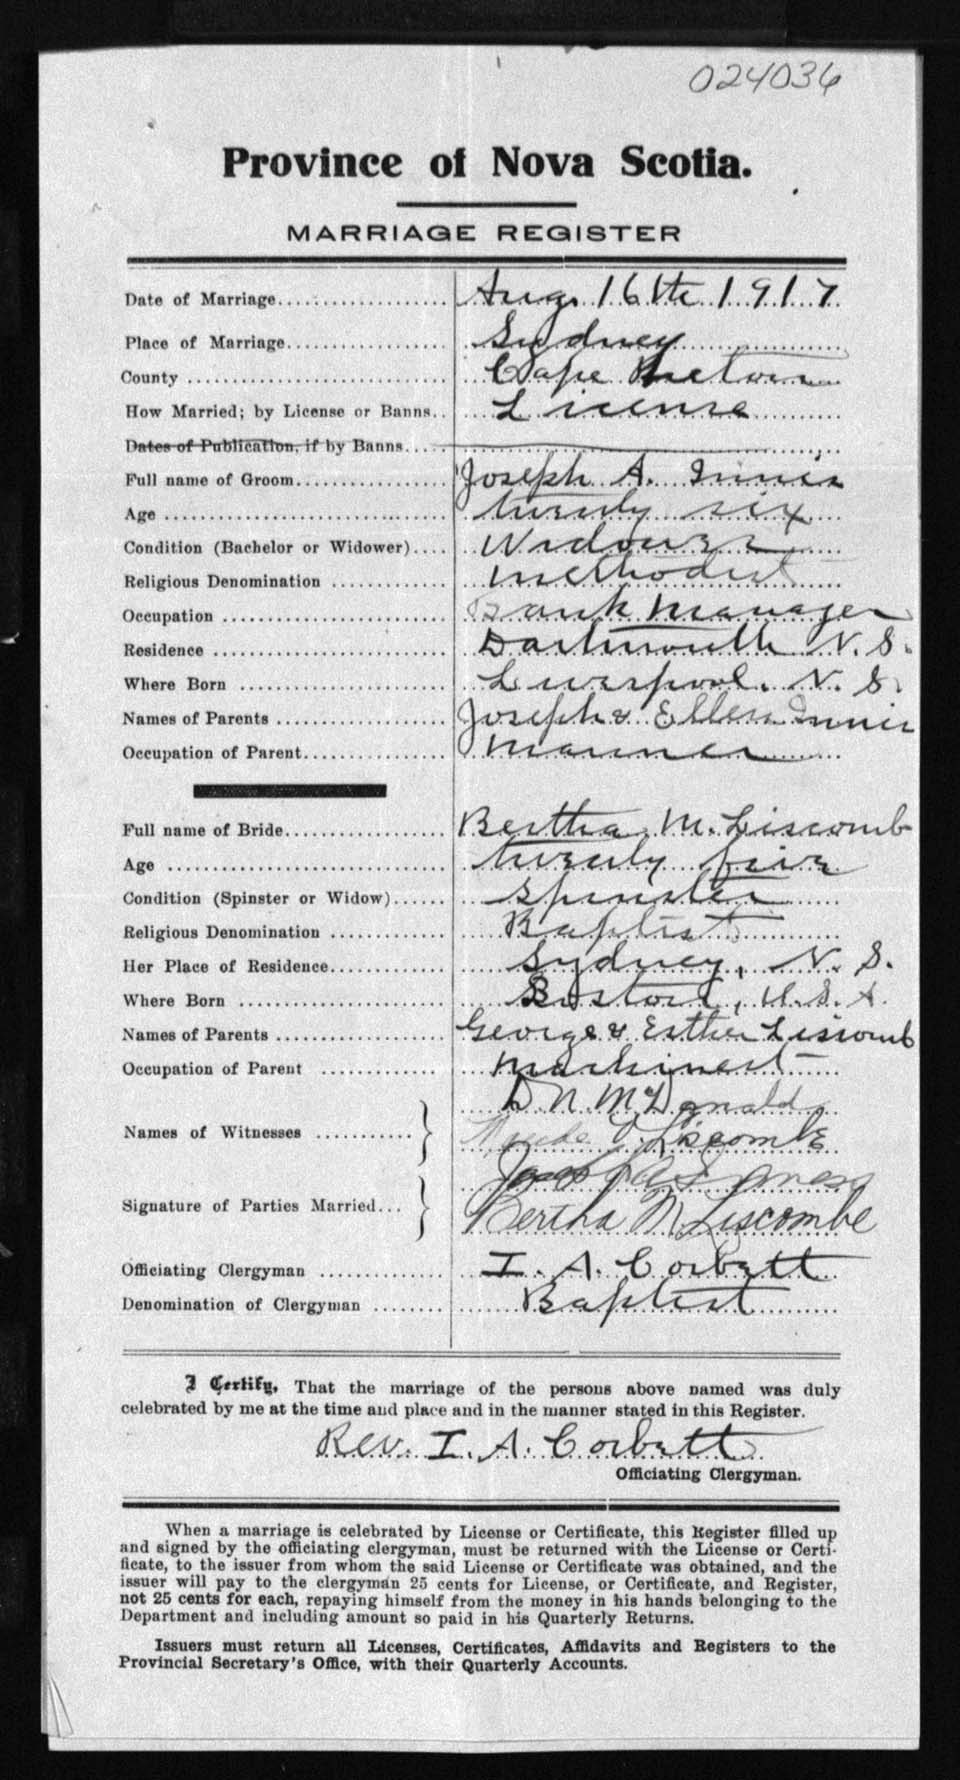 024036
Province of Nova Scotia.
MARRIAGE REGISTER
Date of Marriage.................... Aug. 16th 1917
Place of Marriage................... Sydney
County ............................. Cape Breton
How Married; by License or Banns.. License
Dates of Publication, if by Banns....
Full name of Groom.................. Joseph A. Innis
Age ................................ twenty six
Condition (Bachelor or Widower).... Widower
Religious Denomination ............. Methodist
Occupation ......................... Bank Manager
Residence .......................... Dartmouth N. S.
Where Born ......................... Liverpool. N. S.
Names of Parents ................... Joseph & Ellen Innis
Occupation of Parent................ Mariner
Full name of Bride.................. Bertha M. Liscomb
Age ................................ twenty five
Condition (Spinster or Widow)...... Spinster
Religious Denomination ............. Baptist
Her Place of Residence............. Sydney, N. S.
Where Born ......................... Boston, U. S. A.
Names of Parents ................... George & Esther Liscomb
Occupation of Parent ............... Machinest
D. N. McDonald
Names of Witnesses ........... } Liscombe
Signature of Parties Married... }
Bertha M Liscombe
Officiating Clergyman .............. I. A. Corbett
Denomination of Clergyman ........ Baptist
I Certify, That the marriage of the persons above named was duly
celebrated by me at the time and place and in the manner stated in this Register.
Rev. I. A. Corbett
Officiating Clergyman.
When a marriage is celebrated by License or Certificate, this Register filled up
and signed by the officiating clergyman, must be returned with the License or Certi-
ficate, to the issuer from whom the said License or Certificate was obtained, and the
issuer will pay to the clergyman 25 cents for License, or Certificate, and Register,
not 25 cents for each, repaying himself from the money in his hands belonging to the
Department and including amount so paid in his Quarterly Returns.
Issuers must return all Licenses, Certificates, Affidavits and Registers to the
Provincial Secretary's Office, with their Quarterly Accounts.